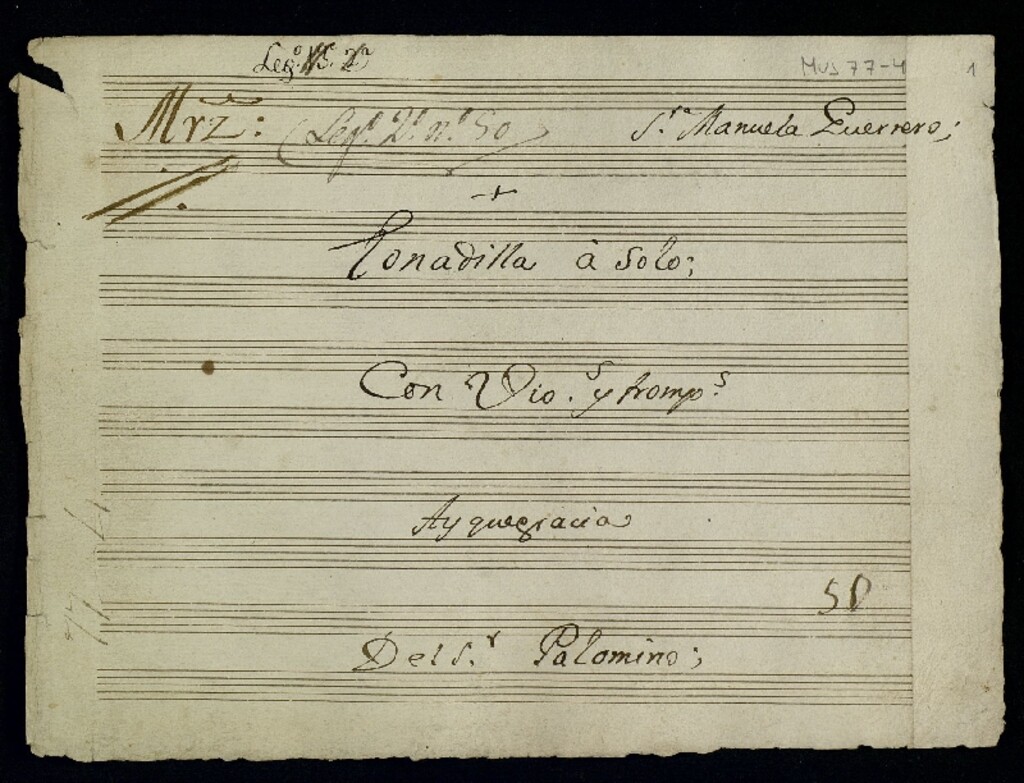 Leg.º 2º MUS 77-4 1
Mrz: Leg.º 2º n.º 50 S.ra Manuela Guerrero;
Tonadilla à Solo;
Con Vio.s y tromp.s
Ay que gracia
50
Del S.r Palomino;